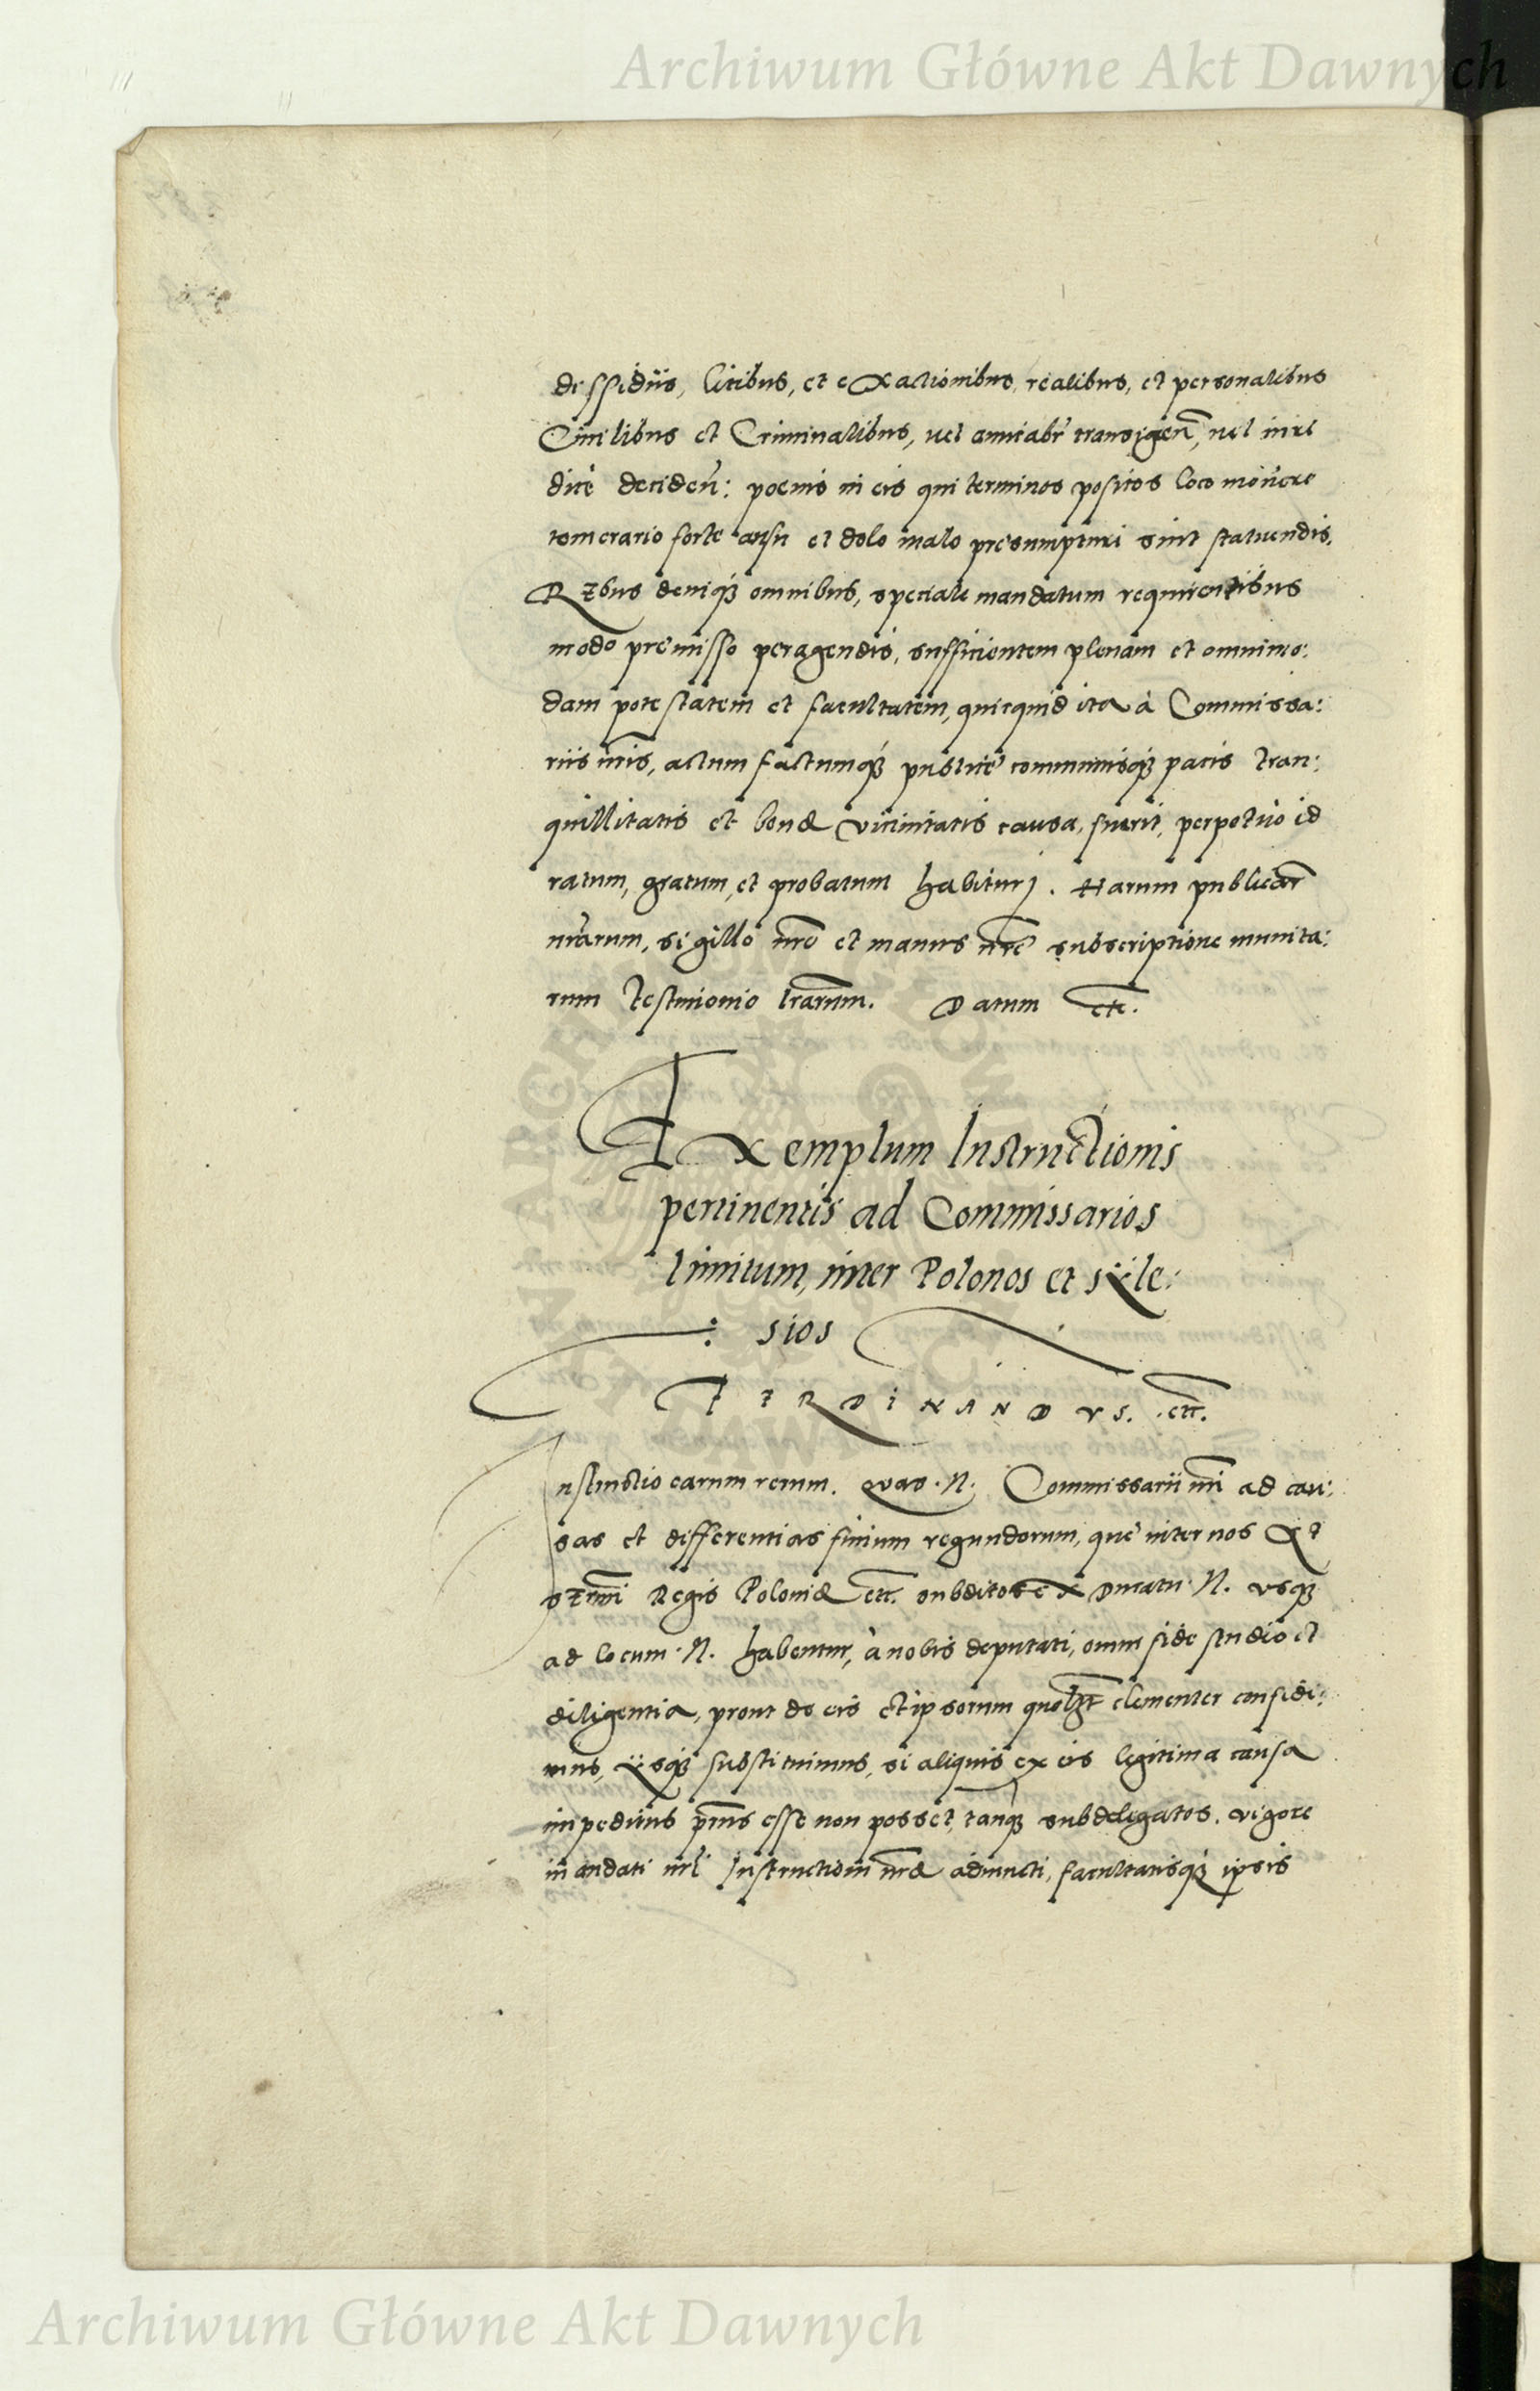 Archiwum Główne Akt Dawnych
dissidiis, litibus, et exactionibus, realibus, et personalibus
Ciuilibus et Criminalibus, uel amicabr̃ transigeñ, uel iure
dicè decideñ: poenis in eis qui terminos positos loco mouere
temerario forte ausu et dolo malo presumpturi sint statuendis.
Rebus deniqȝ omnibus, speciale mandatum requirentibus
modo premisso peragendis, sufficientem plenam et omnimo:
dam potestatem et facultatem, quicquid ita à Commissa:
riis nr̃is, actum factumqȝ publicè communisqȝ pacis tran:
quillitatis et bonæ vicinitatis causa, fuerit, perpetuo id
ratum, gratum, et probatum habiturj. Harum publicar̃
nr̃arum, sigillo nr̃o et manus nr̃e subscriptione munita:
rum testimonio lr̃arum. Datum etc.
Exemplum Instructionis
pertinentis ad Commissarios
limitum, inter Polonos et Sile:
: sios
FERDINANDVS. etc.
Instructio earum rerum. quas .N. Commissarii nr̃i ad cau:
sas et differentias finium regundorum, quę inter nos et
sermi Regis Poloniæ etc. subditos ex Ducatu .N. vsqȝ
ad locum .N. habentur, à nobis deputati, omni fide studio et
diligentia, prout de eis et ipsorum quolȝt clementer confidi:
mus, iisqȝ substituimus, si aliquis ex eis legitima causa
impeditus pñs esse non posset, tanqȝ subdelegatos. vigore
mandati nr̃i Instructioni nr̃æ adiuncti, facultatisqȝ ipsis
Archiwum Główne Akt Dawnych